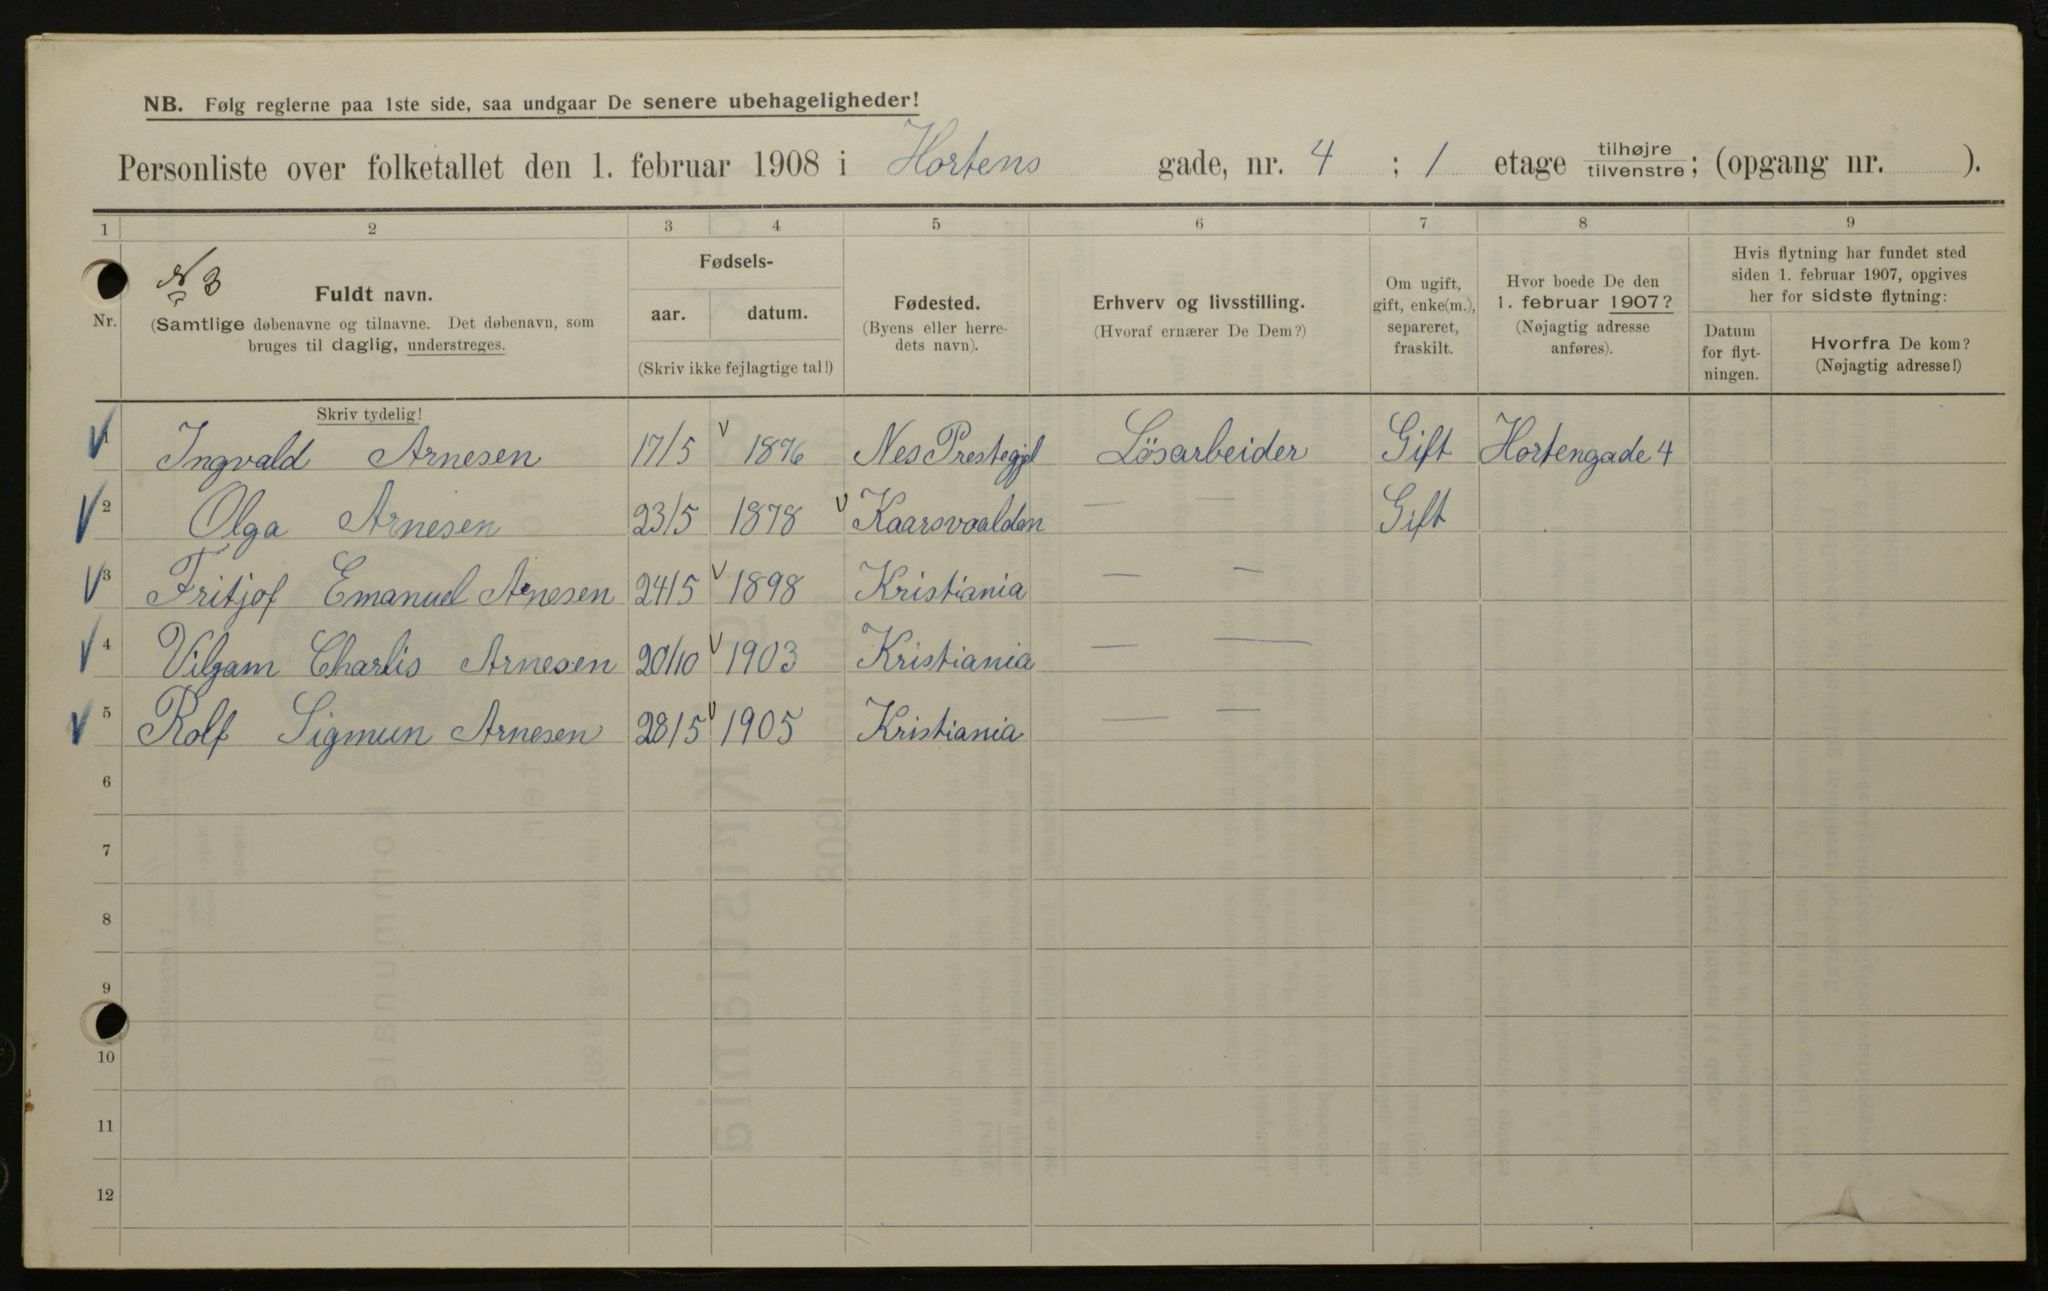 NB. Følg reglerne paa 1ste side, saa undgaar De senere ubehageligheder!
Personliste over folketallet den 1. februar 1908 i Hortens gade, nr. 4 ; 1 etage tilhøjre/tilvenstre; (opgang nr. ).
1 2 3 4 5 6 7 8 9
N 3
Nr.
Fuldt navn.
(Samtlige døbenavne og tilnavne. Det døbenavn, som
bruges til daglig, understreges.
Fødsels-
aar. datum.
(Skriv ikke fejlagtige tal!)
Fødested.
(Byens eller herre-
dets navn).
Erhverv og livsstilling.
(Hvoraf ernærer De Dem?)
Om ugift,
gift, enke(m.),
separeret,
fraskilt.
Hvor boede De den
1. februar 1907?
(Nøjagtig adresse
anføres).
Hvis flytning har fundet sted
siden 1. februar 1907, opgives
her for sidste flytning:
Datum
for flyt-
ningen.
Hvorfra De kom?
(Nøjagtig adresse!)
Skriv tydelig!
1 Ingvald Arnesen 17/5 1876 Nes Prestegjel Lösarbeider Gift Hortengade 4
2 Olga Arnesen 23/5 1878 Kaarsvaalden — — Gift
3 Fritjof Emanuel Arnesen 24/5 1898 Kristiania — —
4 Vilgam Charlis Arnesen 20/10 1903 Kristiania — —
5 Rolf Sigmun Arnesen 28/5 1905 Kristiania — —
6
7
8
9
10
11
12